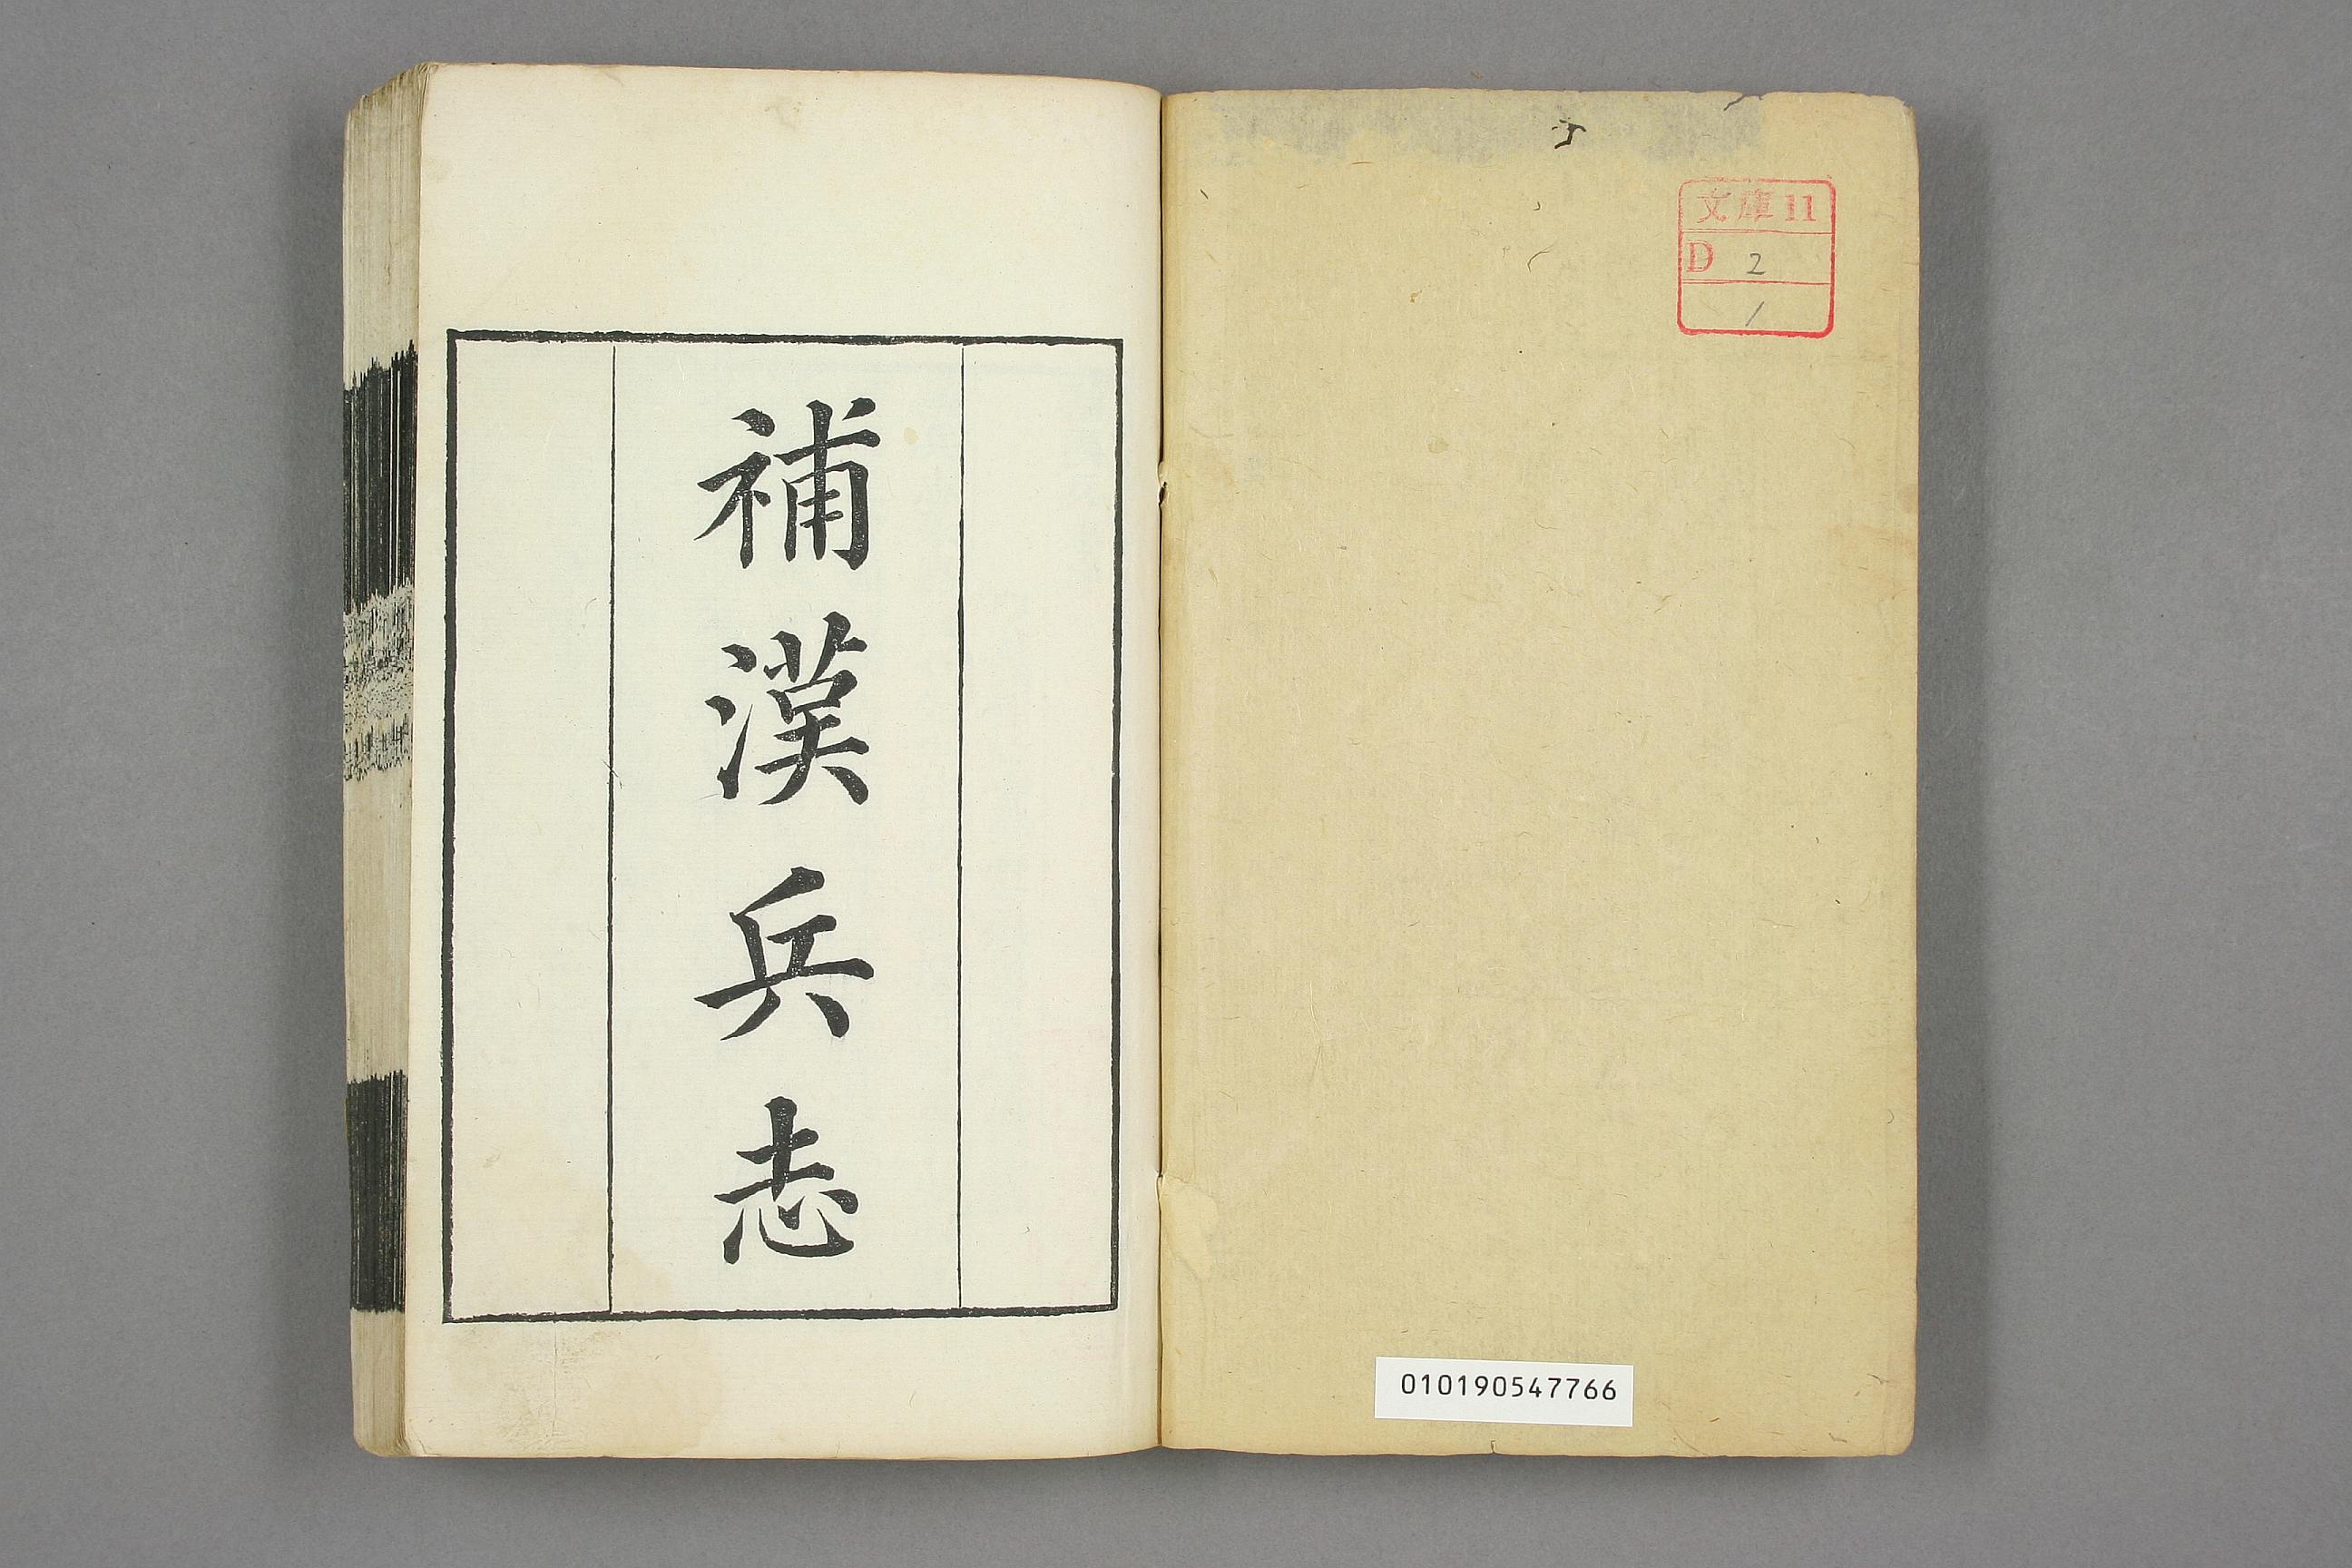 文庫11
D 2
1
010190547766
補漢兵志